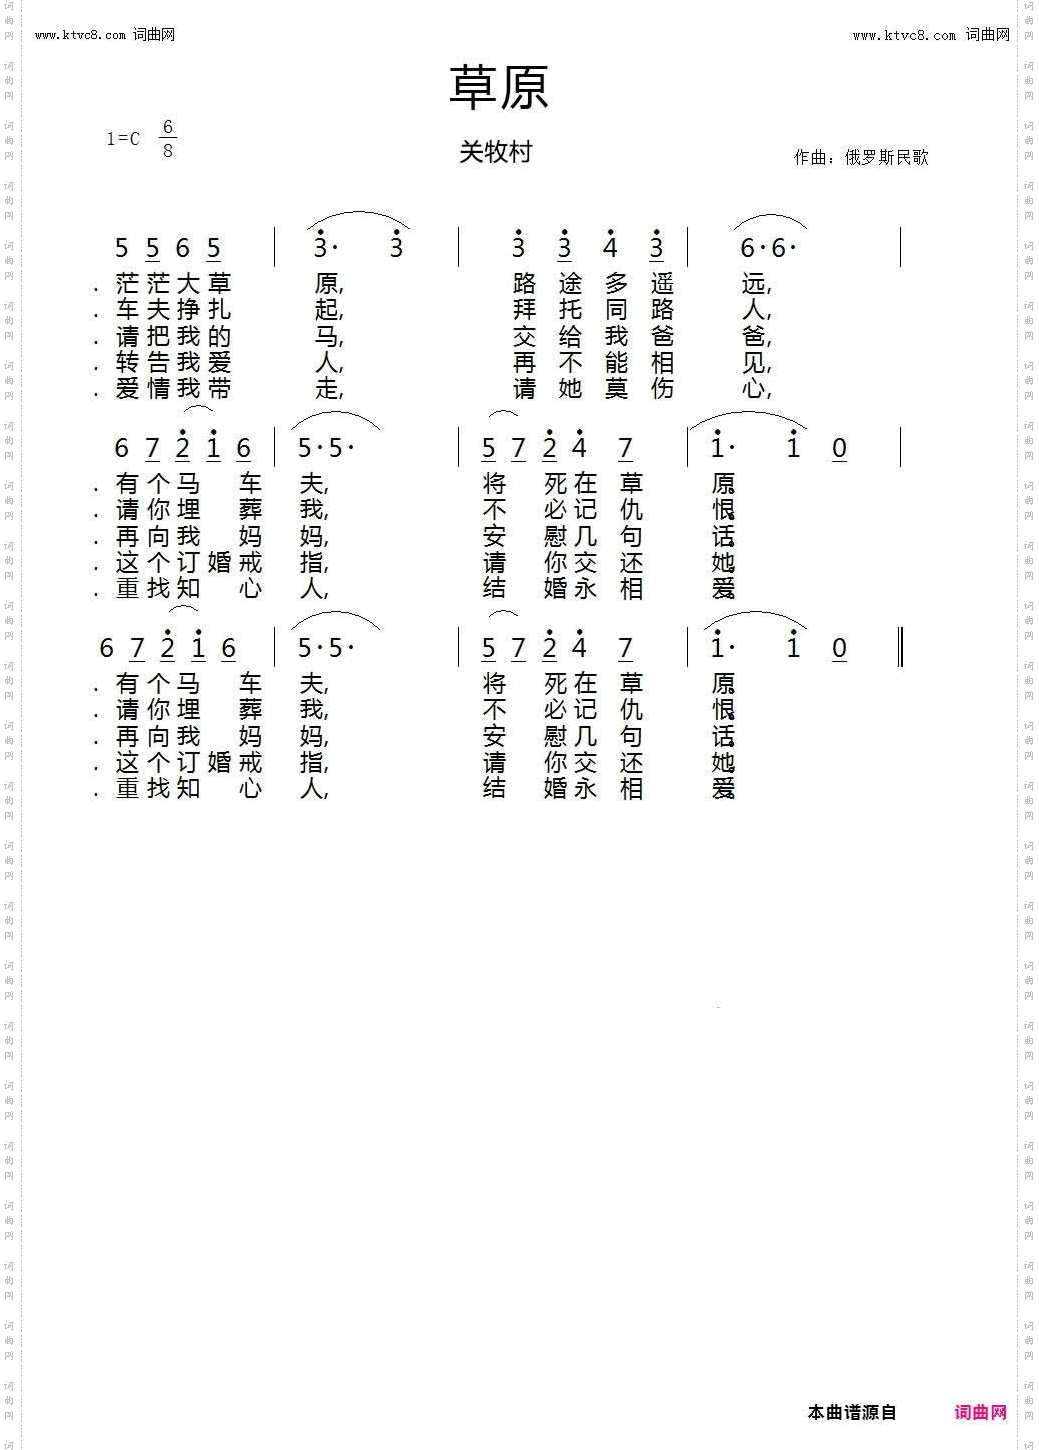 www.ktvc8.com 词曲网 www.ktvc8.com 词曲网
草原
1=C 6/8
关牧村
作曲：俄罗斯民歌
5 5 6 5 | 3· 3 | 3 3 4 3 | 6·6· |
. 茫茫大草 原, 路途多遥 远,
. 车夫挣扎 起, 拜托同路 人,
. 请把我的 马, 交给我爸 爸,
. 转告我爱 人, 再不能相 见,
. 爱情我带 走, 请她莫伤 心,
6 7 2 1 6 | 5·5· | 5 7 2 4 7 | 1· 1 0 |
. 有个马 车 夫, 将 死在草 原。
. 请你埋 葬 我, 不 必记仇 恨。
. 再向我 妈 妈, 安 慰几句 话。
. 这个订婚戒 指, 请 你交还 她。
. 重找知 心 人, 结 婚永相 爱。
6 7 2 1 6 | 5·5· | 5 7 2 4 7 | 1· 1 0 ||
. 有个马 车 夫, 将 死在草 原。
. 请你埋 葬 我, 不 必记仇 恨。
. 再向我 妈 妈, 安 慰几句 话。
. 这个订婚戒 指, 请 你交还 她。
. 重找知 心 人, 结 婚永相 爱。
本曲谱源自 词曲网